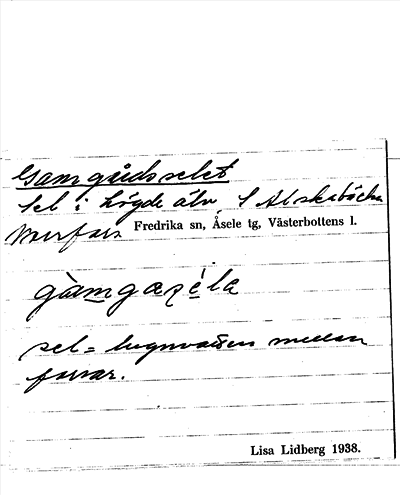 Gamgårdsselet
Sel i Lögde älv S Älskabäcken
Norrfors Fredrika sn, Åsele tg, Västerbottens l.
gàmgaṣéla
sel = lugnvatten mellan
forsar.
Lisa Lidberg 1938.